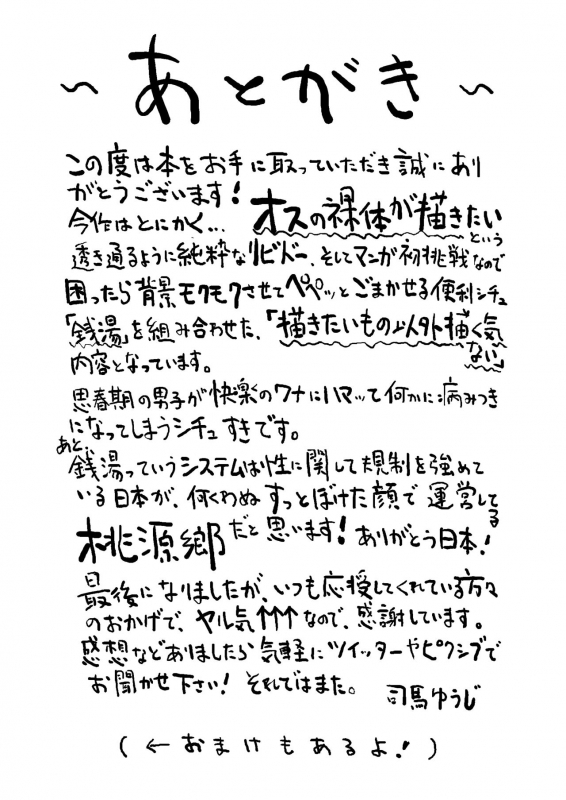 ～あとがき～
この度は本をお手に取っていただき誠にあり
がとうございます！
今作はとにかく… オスの裸体が描きたい
という
透き通るように純粋なリビドー、そしてマンガ初挑戦なので
困ったら背景モクモクさせてペペッとごまかせる便利シチュ
「銭湯」を組み合わせた、「描きたいもの以外描く気
ない」
内容となっています。
思春期の男子が快楽のワナにハマって何かに病みつき
になってしまうシチュすきです。
あと、
銭湯っていうシステムは性に関して規制を強めて
いる日本が、何くわぬすっとぼけた顔で運営してる
桃源郷だと思います！ ありがとう日本！
最後になりましたが、いつも応援してくれている方々
のおかげで、ヤル気↑↑↑なので、感謝しています。
感想などありましたら気軽にツイッターやピクシブで
お聞かせ下さい！ それではまた。 司馬ゆうじ
(←おまけもあるよ！)